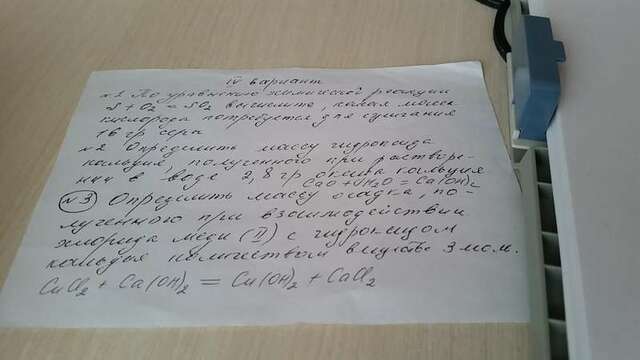 IV вариант
№1 По уравнению химической реакции
S + O2 = SO2 вычислите, какая масса
кислорода потребуется для сжигания
16 гр серы
№2 Определить массу гидроксида
кальция, полученного при растворе-
нии в воде 2,8 гр оксида кальция
CaO + H2O = Ca(OH)2
№3 Определить массу осадка, по-
лученного при взаимодействии
хлорида меди (II) с гидроксидом
кальция количеством вещества 3 мол.
CuCl2 + Ca(OH)2 = Cu(OH)2 + CaCl2